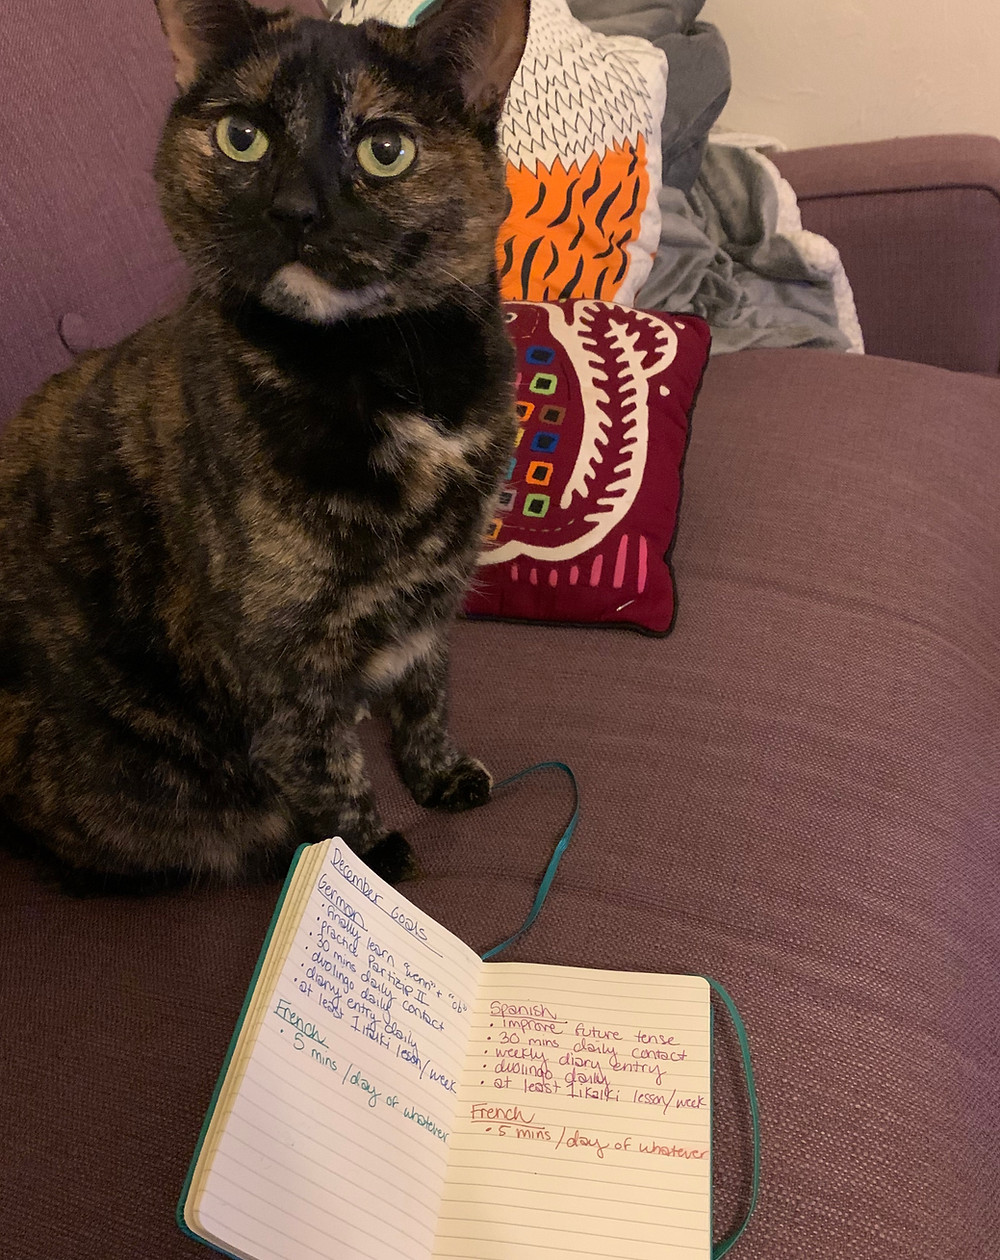 December Goals
German
• finally learn "wenn" + "ob"
• practice Partizip II
• 30 mins daily contact
• duolingo daily
• diary entry daily
• at least 1 italki lesson/week
French
• 5 mins/day of whatever
Spanish
• improve future tense
• 30 mins daily contact
• weekly diary entry
• duolingo daily
• at least 1 italki lesson/week
French
• 5 mins/day of whatever